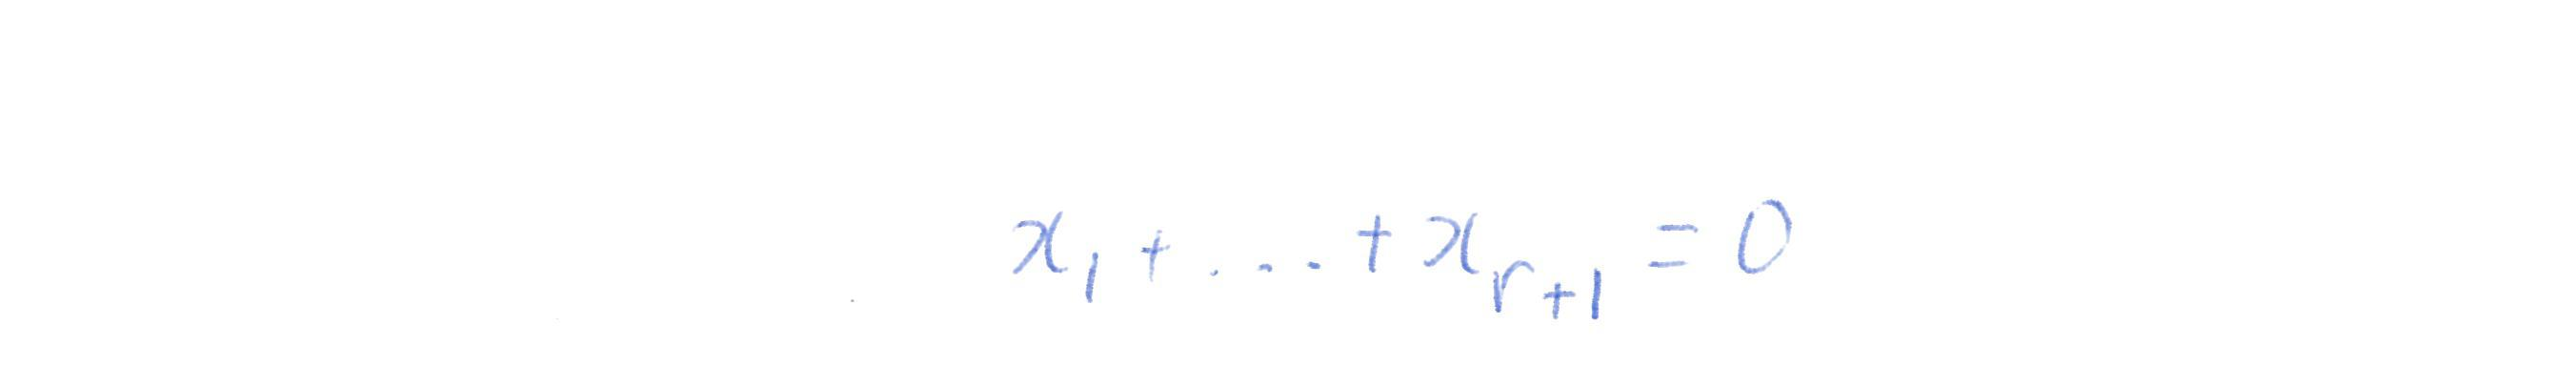 x₁ + ... + xᵣ₊₁ = 0